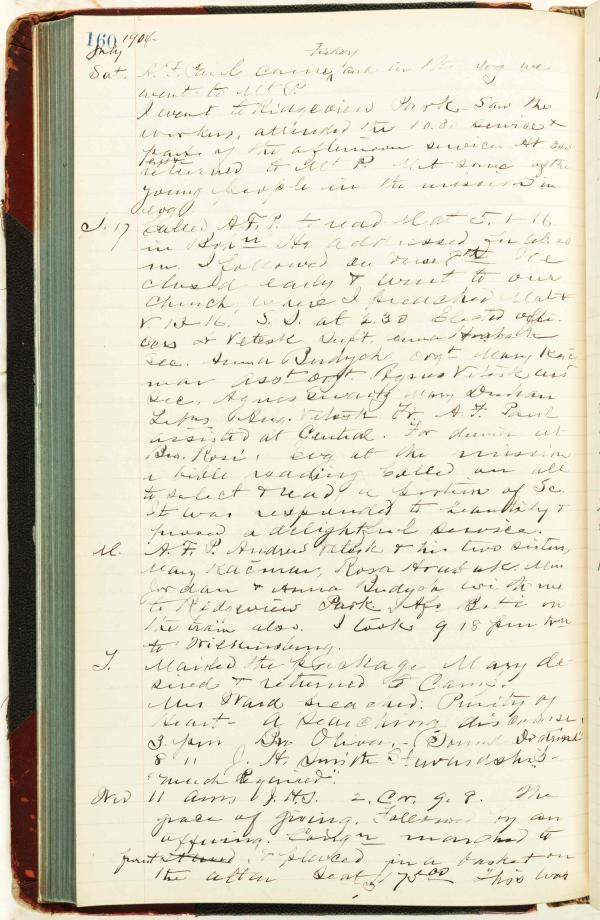 160
July 1904
Friday
Sat. A. F. Paul came, and in the  we
went to Mt P.
I went to Ridgeview Park. Saw the
workers, attended the 10.30 service &
part of the afternoon service. At 3
returned to Mt P. Met some of the
young people in the mission in
evg
S. 17 Called A. F. P. to read Mat 5. 1-16
in  He addressed
m. I followed on verse 8th. We
closed early & went to our
Church, where I preached Mat
V. 13-16. S. S. at 2.30 Elected offi-
cers A Vetesk Supt,
Sec. Anna Budych Orgt Mary Kac
mar Asst Orgt. Agnes Vetesk
Sec. Agnes  Mary Duchan
 Aug. Vetesk Tr. A. F. Paul
assisted at Central. For dinner at
Bro. Ros. Evg at the mission
a bible reading Called on all
to select & read a portion of Sc.
It was responded to heartily &
proved a delightful service.
M. A. F. P. Andrew Vetesk & his two sisters,
Mary Kačmar, Rosa  Miss
Jordan & Anna Budych with me
to Ridgeview Park.  on
the train also. I took 9 18 pm
to Wilkinsburg.
T. Mailed the package Mary de
sired & returned to Camp.
Mrs Ward preached: Purity of
heart - A searching discourse.
3. pm Bro Oliver - (Sound Doctrine"
8 " J. H. Smith Stewardship -
"much required".
Wed 11 am J. H. S. 2. Cor. 9. 8. The
grace of giving. Followed by an
offering. Congn marched to
front & placed in a basket on
the altar  $175 00 This was